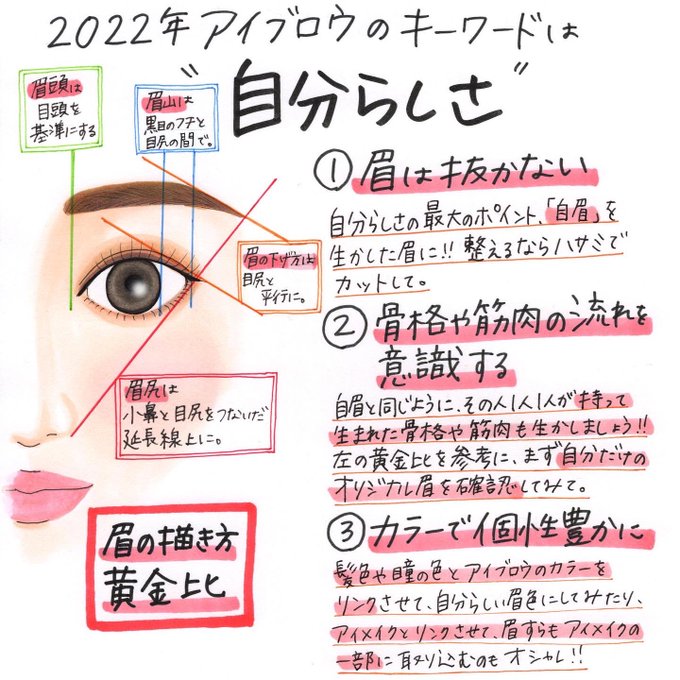 2022年アイブロウのキーワードは
"自分らしさ"
眉頭は
目頭を
基準にする
眉山は
黒目のフチと
目尻の間で。
眉の下げ方は
目尻と
平行に。
眉尻は
小鼻と目尻をつないだ
延長線上に。
眉の描き方
黄金比
①眉は抜かない
自分らしさの最大のポイント、「自眉」を
生かした眉に!!整えるならハサミで
カットして。
②骨格や筋肉の流れを
意識する
自眉と同じように、その人1人1人が持って
生まれた骨格や筋肉も生かしましょう!!
左の黄金比を参考に、まず自分だけの
オリジナル眉を確認してみて。
③カラーで個性豊かに
髪色や瞳の色とアイブロウのカラーを
リンクさせて、自分らしい眉色にしてみたり、
アイメイクとリンクさせて、眉すらもアイメイクの
一部に取り込むのもオシャレ!!